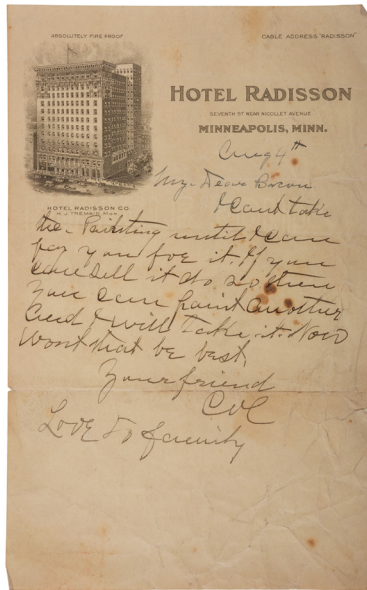 ABSOLUTELY FIRE PROOF
CABLE ADDRESS "RADISSON"
HOTEL RADISSON
SEVENTH ST NEAR NICOLLET AVENUE
MINNEAPOLIS, MINN.
HOTEL RADISSON CO
Aug 9th
My Dear Bacon
I cant take
the Painting until I can
pay you for it. If you
can sell it do so then
you can paint another
and I will take it. Now
wont that be best.
Your friend
Love to family